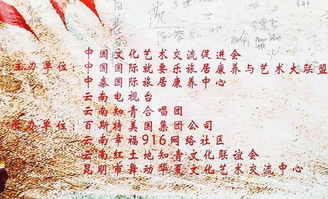 中国文化艺术交流促进会
主办单位：中国国际就要乐旅居康养与艺术大联盟
中泰国际旅居康养中心
云南电视台
云南知青合唱团
承办单位：百斯特美国集团公司
云南幸福916网络社区
云南红土地知青文化联谊会
昆明市舞动华夏文化艺术交流中心